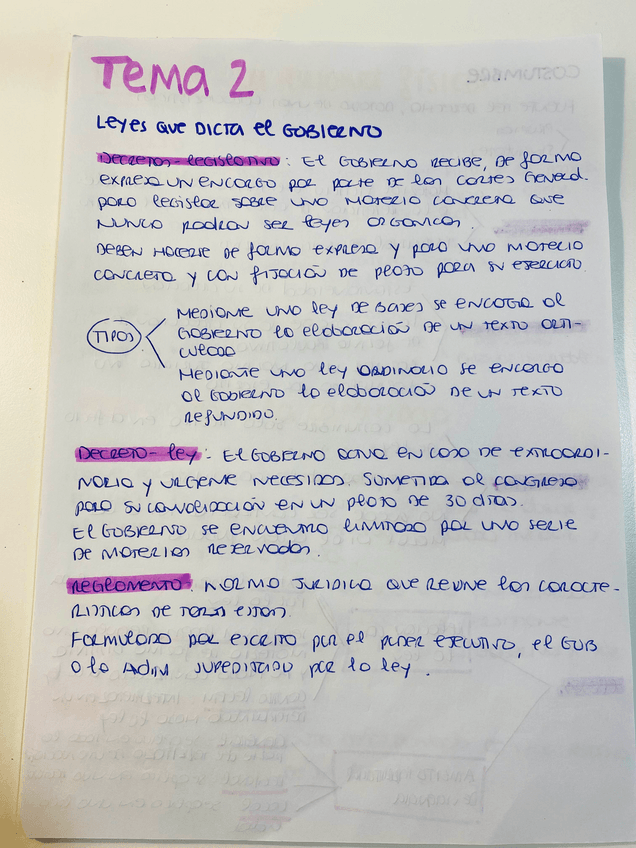 Tema 2
Leyes que dicta el Gobierno
Decretos-legislativo: El Gobierno recibe, de forma
expresa un encargo por parte de las Cortes General.
para legislar sobre una materia concreta que
nunca podrán ser leyes orgánicas.
Deben hacerse de forma expresa y para una materia
concreta y con fijación de plazo para su ejercicio.
TIPOS
Mediante una ley de bases se encarga al
Gobierno la elaboración de un texto arti-
culado
Mediante una ley ordinaria se encarga
al Gobierno la elaboración de un texto
refundido.
Decreto-ley: El Gobierno actua en caso de extraordi-
naria y urgente necesidad. Sometida al congreso
para su convalidación en un plazo de 30 días.
El Gobierno se encuentra limitado por una serie
de materias reservadas.
Reglamento: Norma jurídica que reune las caracte-
risticas de
Formulada por escrito por el poder ejecutivo, el Gob
o la Adm supeditado por la ley.
COSTUMBRE